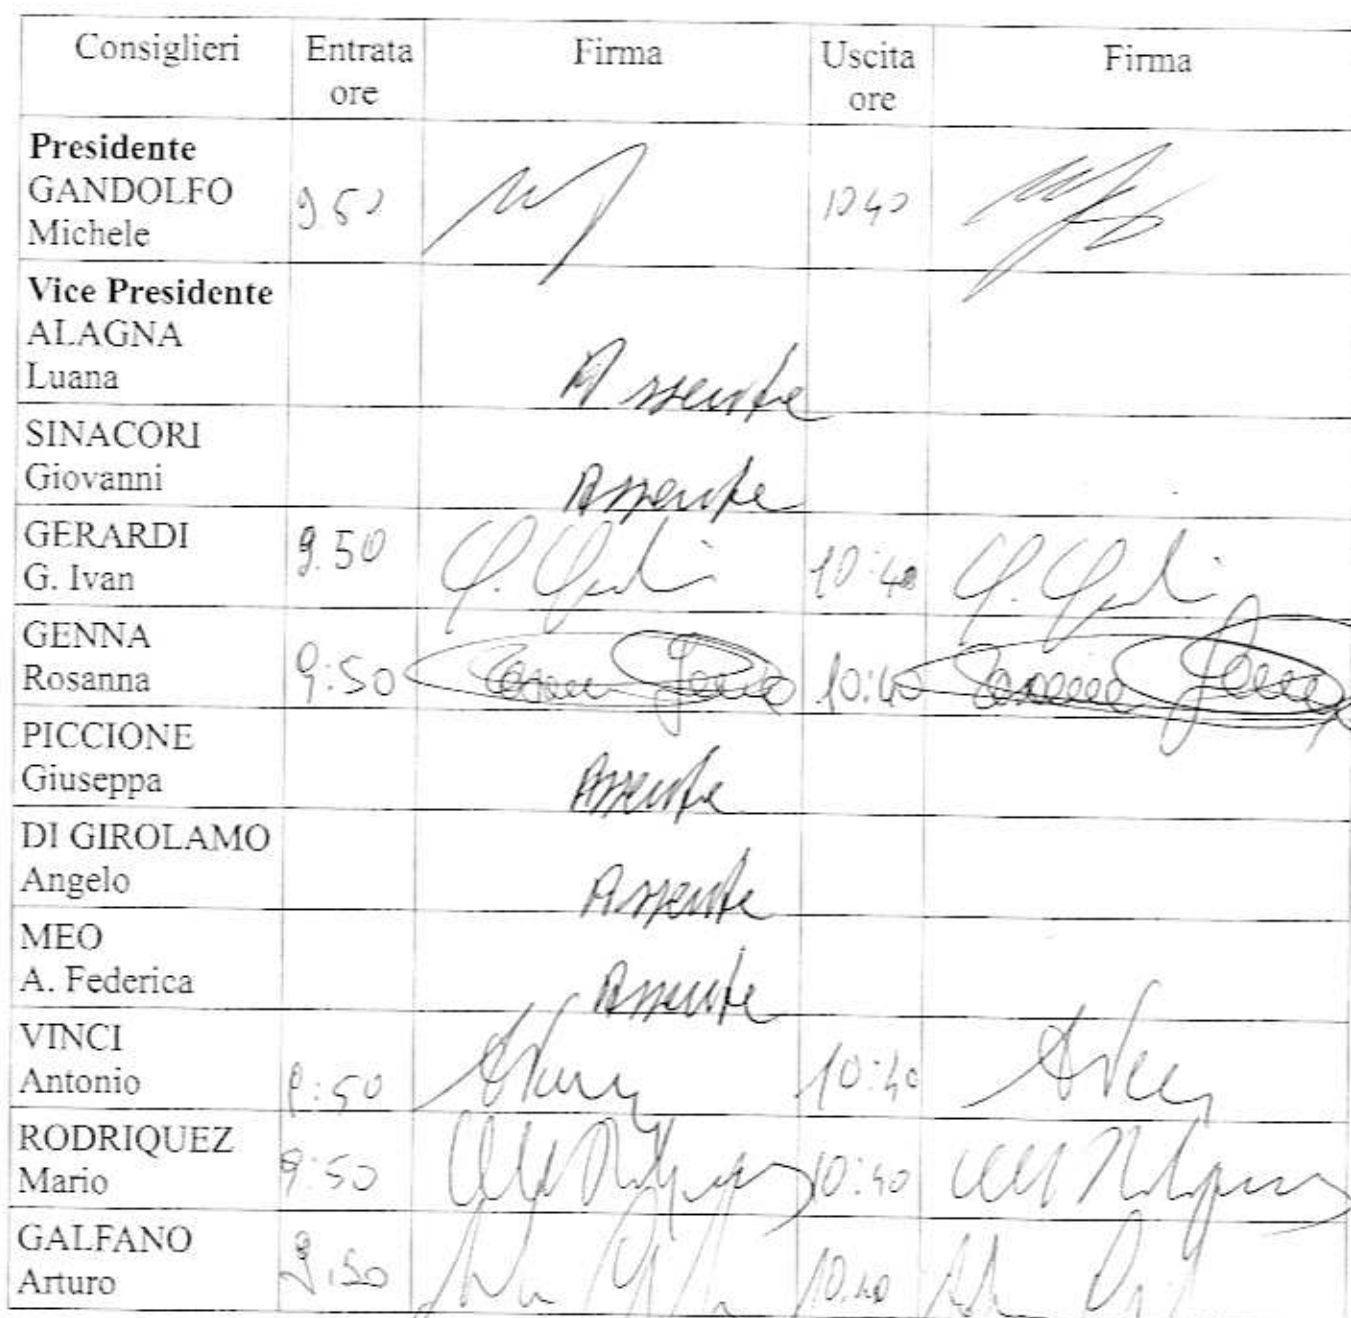 Consiglieri Entrata ore Firma Uscita ore Firma
Presidente
GANDOLFO
Michele 9 50 1040
Vice Presidente
ALAGNA
Luana Assente
SINACORI
Giovanni Assente
GERARDI 9.50 10:40
G. Ivan
GENNA
Rosanna 9:50 10:40
PICCIONE
Giuseppa Assente
DI GIROLAMO
Angelo Assente
MEO
A. Federica Assente
VINCI
Antonio 9:50 10:40
RODRIQUEZ
Mario 9:50 10:40
GALFANO
Arturo 9.50 10.40